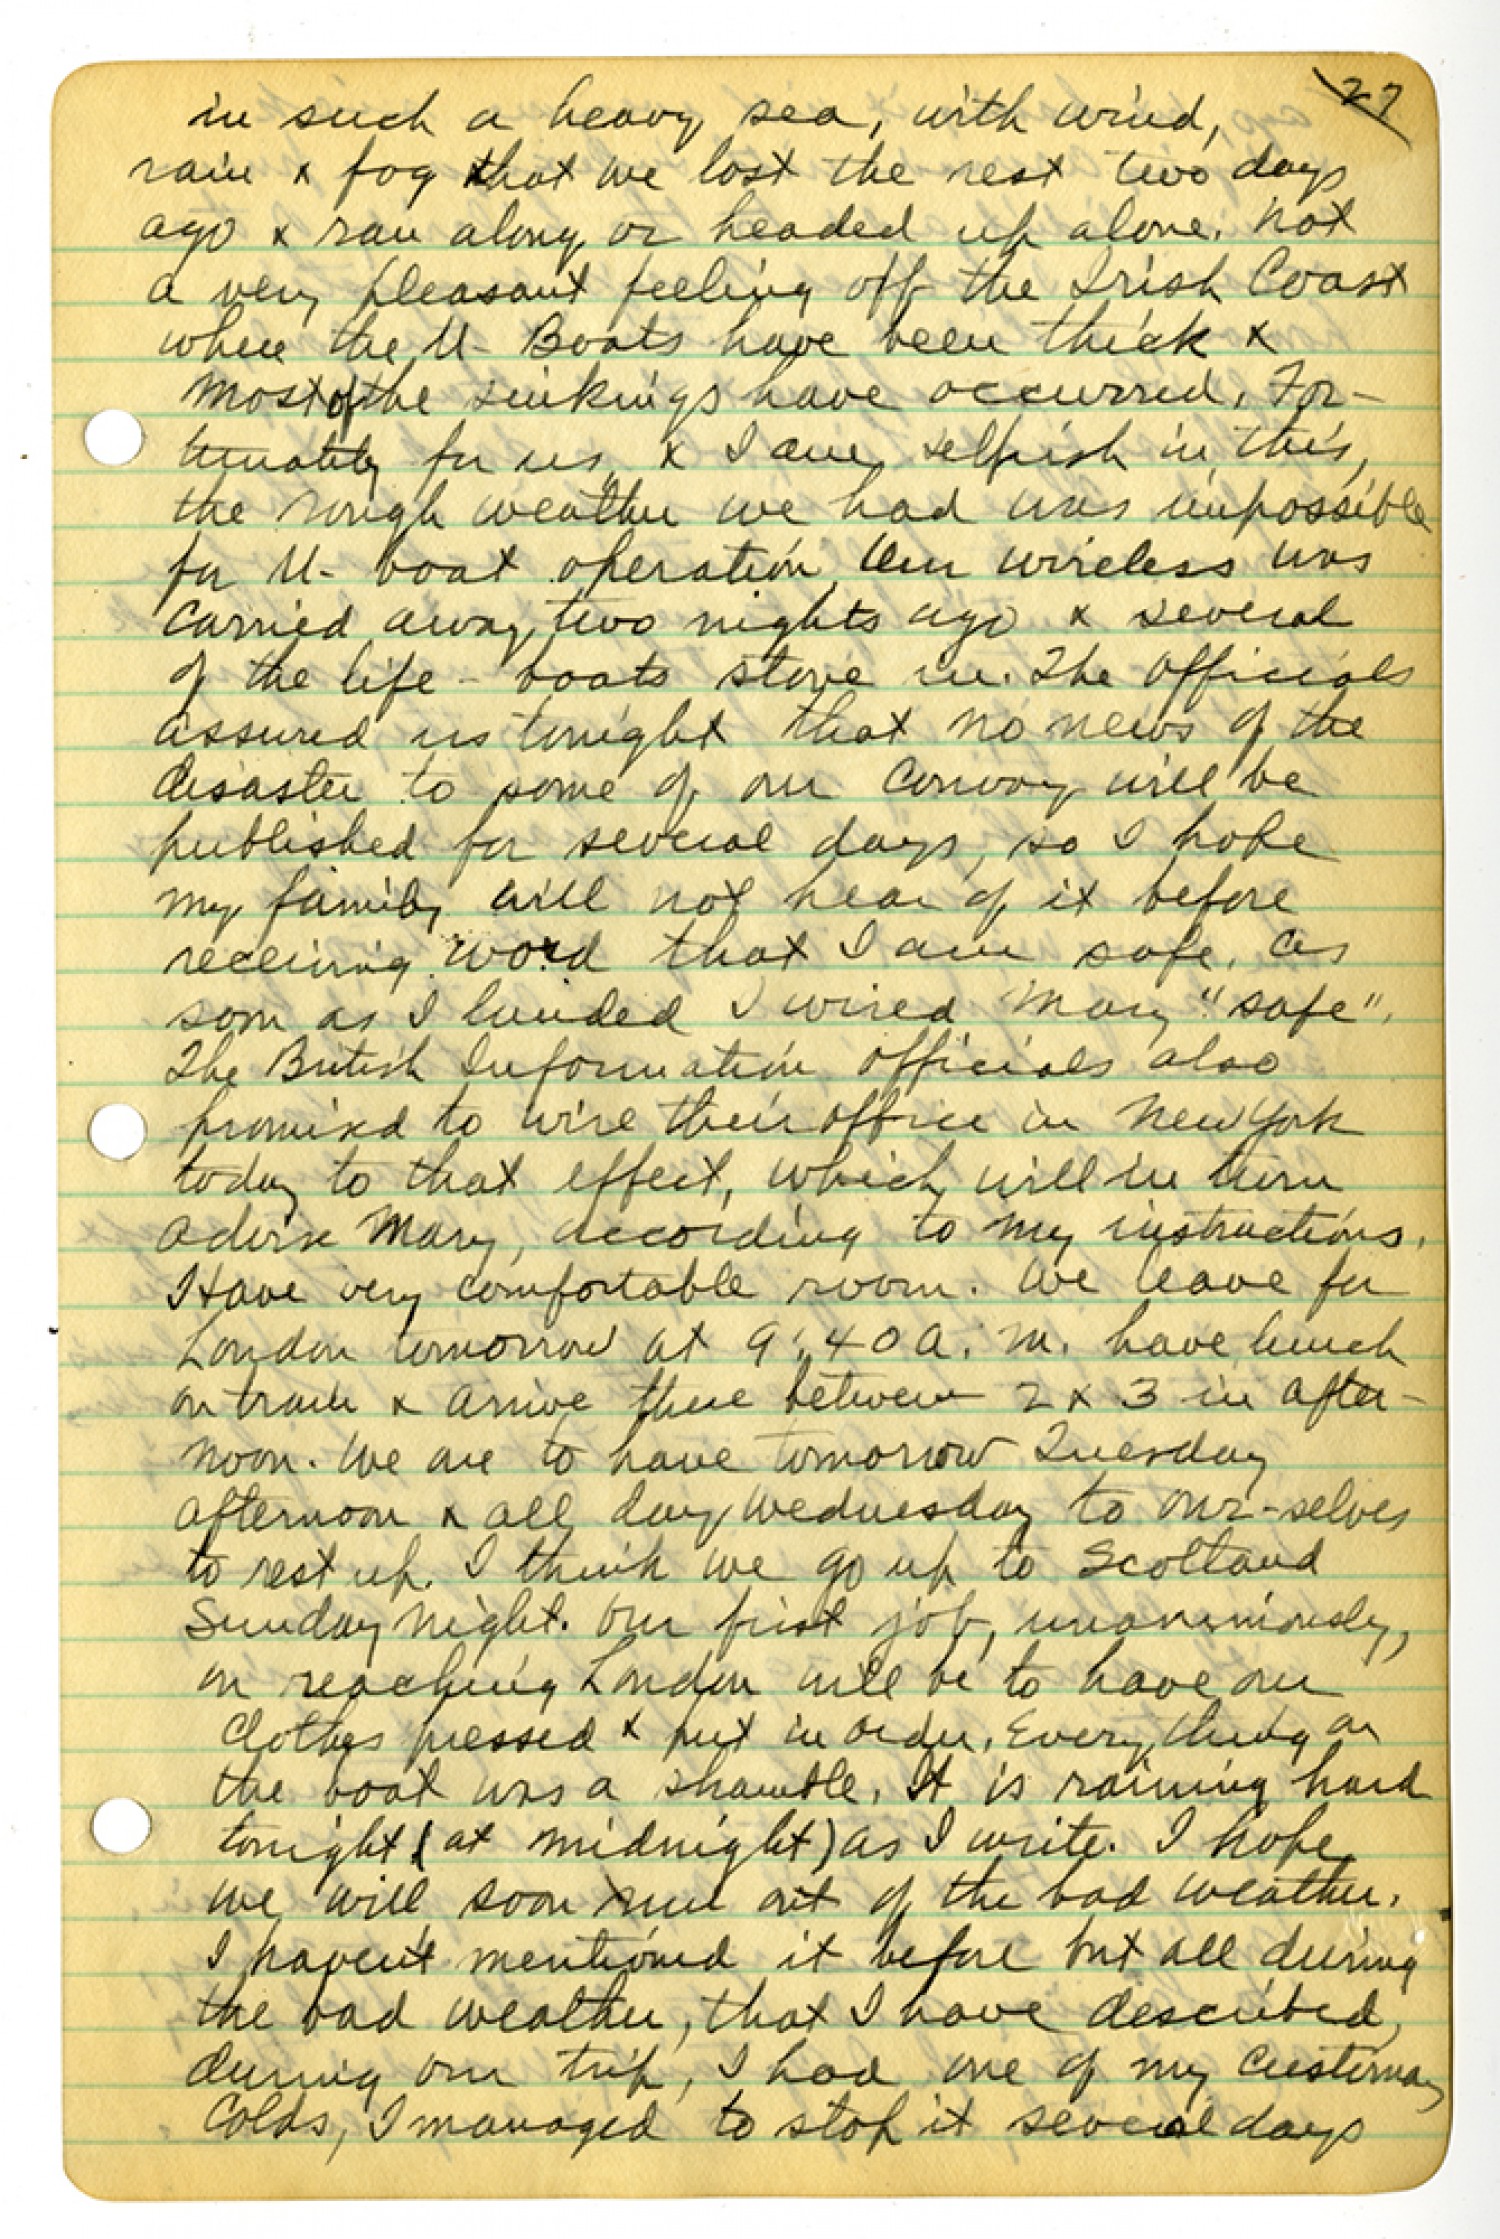 27
in such a heavy sea, with wind,
rain & fog that we lost the rest two days
ago & ran along or headed up alone. Not
a very pleasant feeling off the Irish Coast
where the U-Boats have been thick &
most of the sinkings have occurred. For-
tunately for us, & I am selfish in this,
the rough weather we had was impossible
for U-boat operation. Our wireless was
carried away two nights ago & several
of the life-boats stove in. The officials
assured us tonight that no news of the
disaster to some of our Convoy will be
published for several days, so I hope
my family will not hear of it before
receiving word that I am safe. As
soon as I landed I wired Mary "safe".
The British Information officials also
promised to wire their office in New York
today to that effect, which will in turn
advise Mary, according to my instructions.
Have very comfortable room. We leave for
London tomorrow at 9:40 A.M. have lunch
on train & arrive there between 2 & 3 in after-
noon. We are to have tomorrow Tuesday
afternoon & all day Wednesday to our-selves
to rest up. I think we go up to Scotland
Sunday night. Our first job, unanimously,
on reaching London will be to have our
clothes pressed & put in order. Everything on
the boat was a shamble. It is raining hard
tonight (at midnight) as I write. I hope
we will soon run out of the bad weather.
I haven't mentioned it before but all during
the bad weather, that I have described,
during our trip, I had one of my customary
Colds, I managed to stop it several days